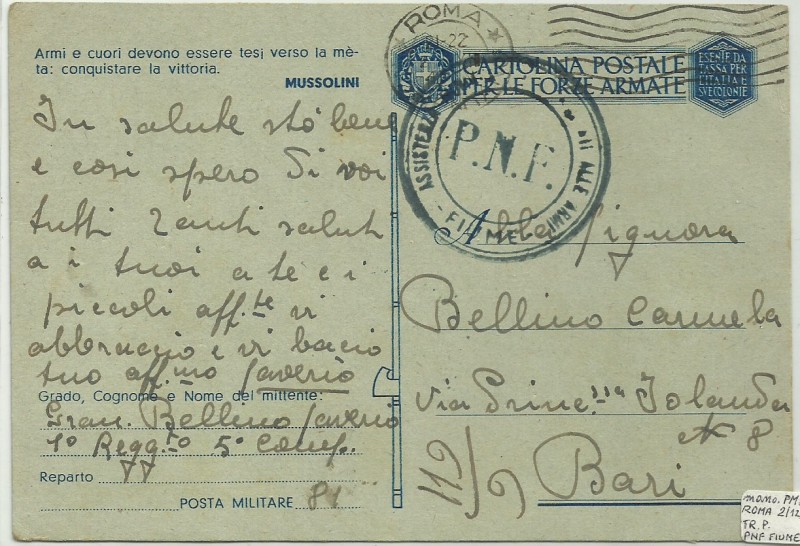 Armi e cuori devono essere tesi verso la mè-
ta: conquistare la vittoria.
MUSSOLINI
In salute stò bene
e così spero Di voi
tutti Tanti saluti
a i tuoi a te e i
piccoli aff.te vi
abbraccio e vi bacio
tuo aff.mo Saverio
Grado, Cognome e Nome del mittente:
Gran. Bellino Saverio
1o Regg.to 5o Comp.
Reparto
POSTA MILITARE 81
ROMA
CARTOLINA POSTALE
PER LE FORZE ARMATE
ESENTE DA
TASSA PER
L'ITALIA E
SVE COLONIE
P.N.F.
FIUME
ALLE ARMI
Alla Signora
Bellino Carmela
Via Princ.ssa Jolanda
N 8
Bari
112/9
mano. PM.
ROMA 2/12
TR. P.
PNF FIUME